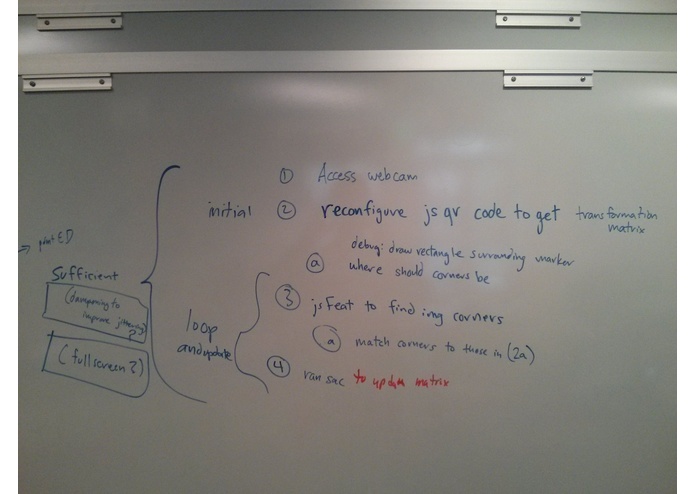 ① Access webcam
initial ② reconfigure jsqr code to get transformation
matrix
ⓐ debug: draw rectangle surrounding marker
where should corners be
③ jsFeat to find img corners
ⓐ match corners to those in (2a)
④ ransac to update matrix
loop
and update
Sufficient
(dampening to
improve jittering)
?
(fullscreen?)